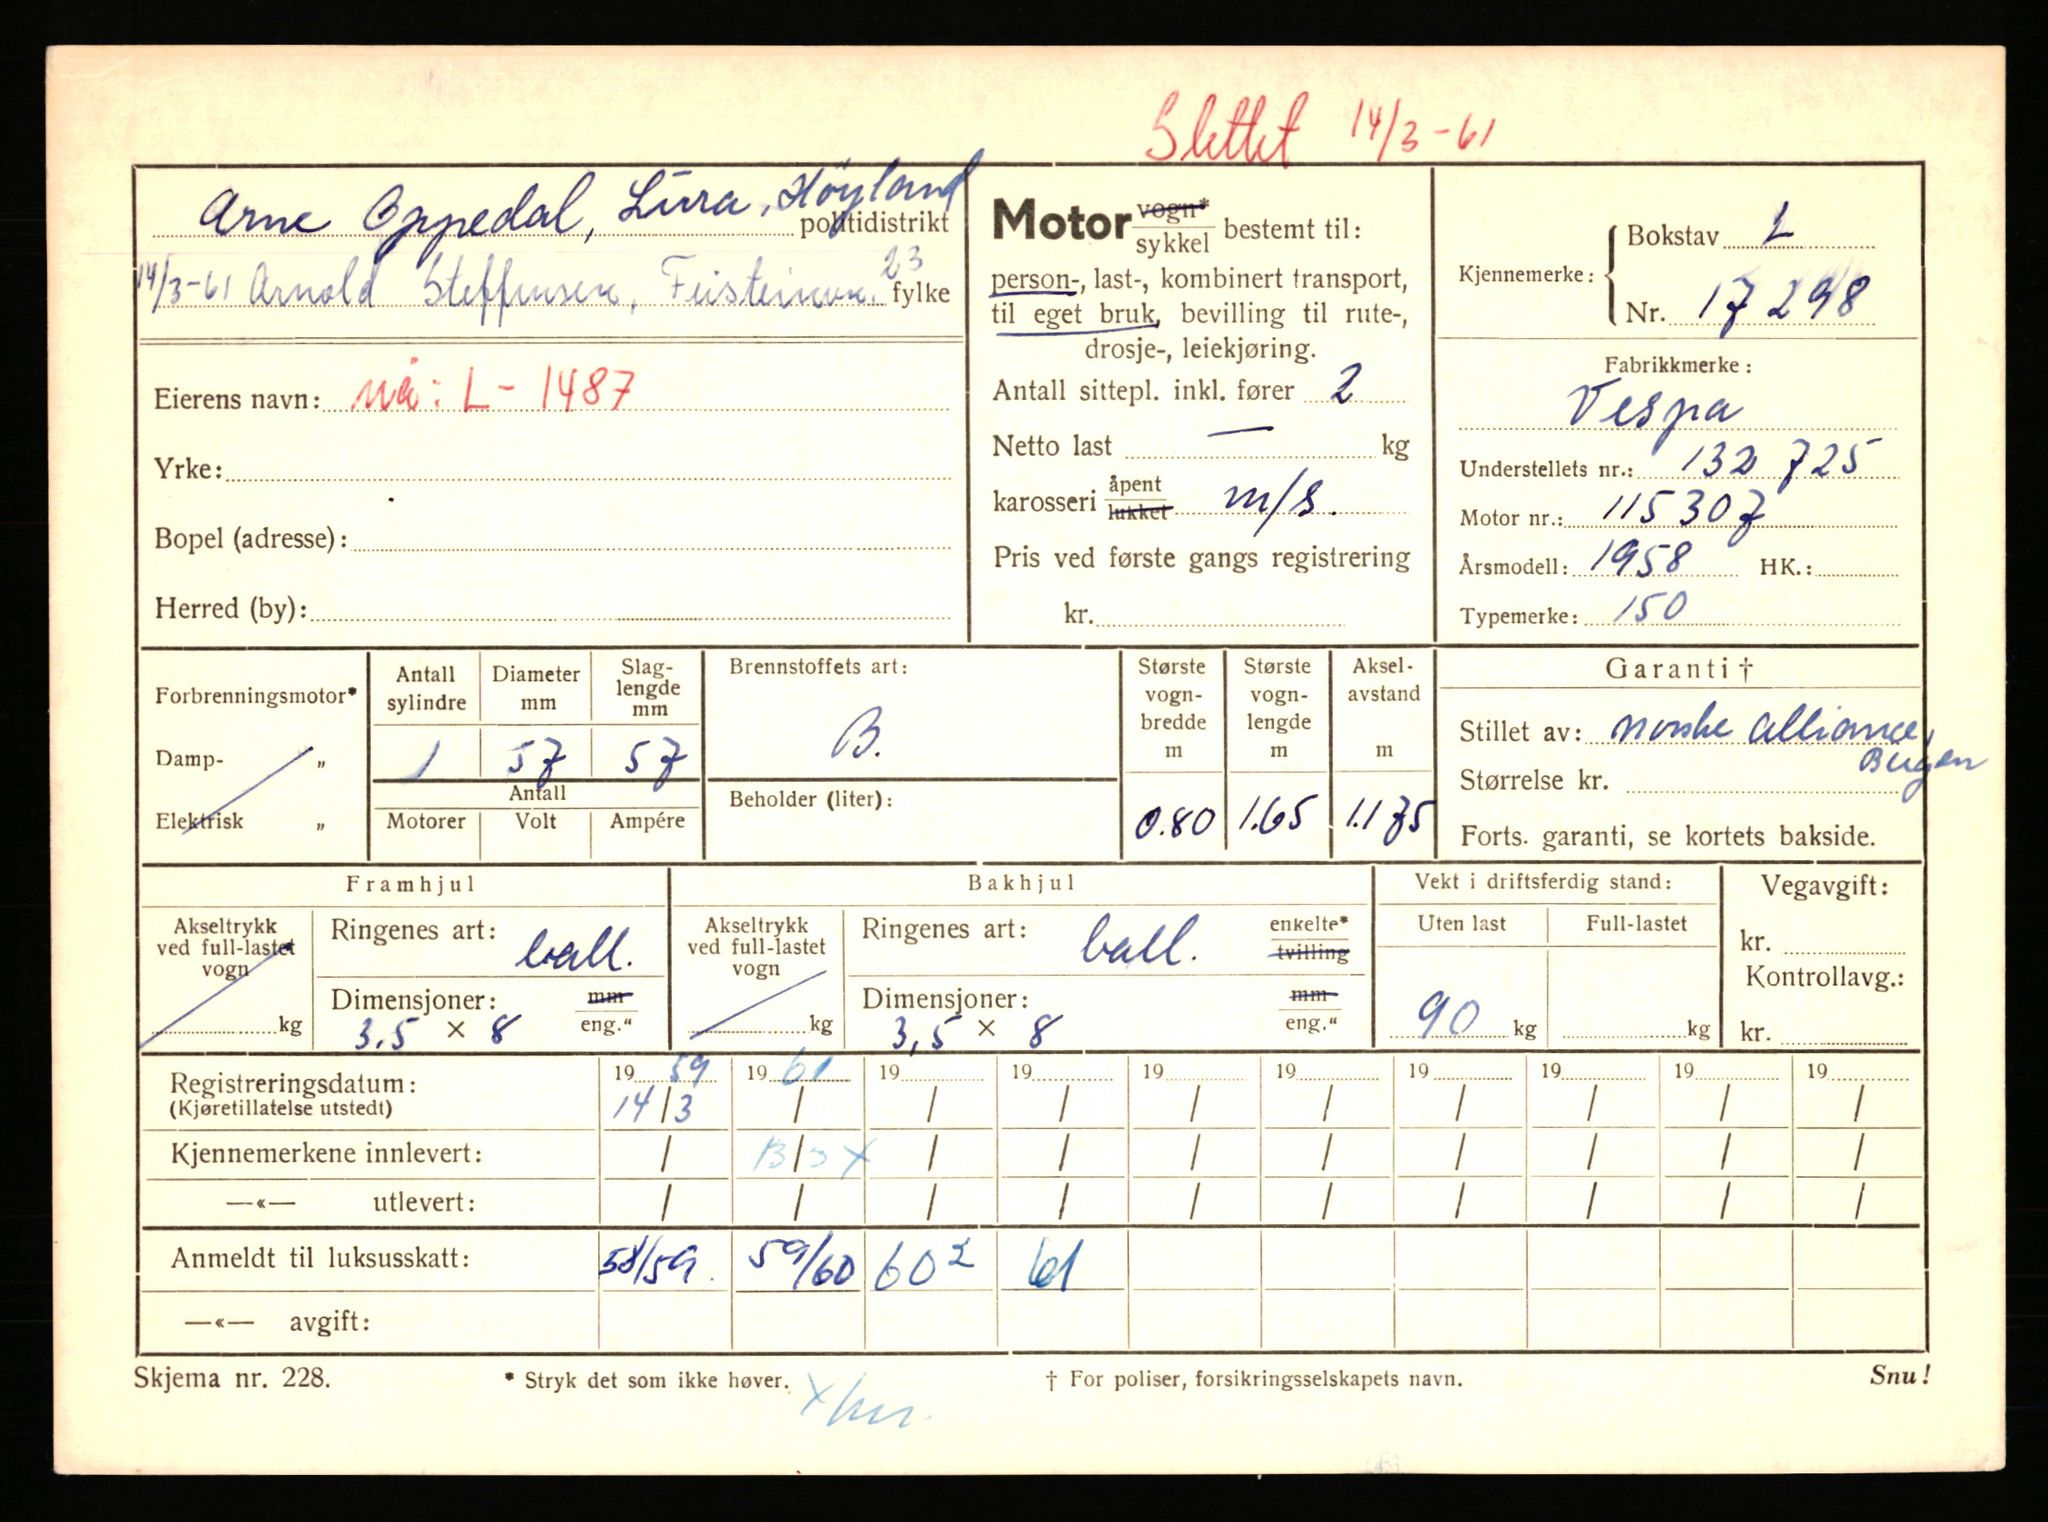 Slettet 14/3-61
Arne Oppedal, Lura, Höyland politidistrikt
14/3-61 Arnold Steffensen, 23 fylke
Eierens navn: nå: L-1487
Yrke:
Bopel (adresse):
Herred (by):
Motor vogn* / sykkel bestemt til:
person-, last-, kombinert transport,
til eget bruk, bevilling til rute-,
drosje-, leiekjøring.
Antall sittepl. inkl. fører 2
Netto last — kg
karosseri åpent / lukket m/s.
Pris ved første gangs registrering
kr.
Kjennemerke: Bokstav L
Nr. 17298
Fabrikkmerke:
Vespa
Understellets nr.: 132 725
Motor nr.: 115307
Årsmodell: 1958 HK.:
Typemerke: 150
Forbrenningsmotor*
Damp- „
Elektrisk „
Antall sylindre 1
Diameter mm 57
Slag-lengde mm 57
Antall
Motorer Volt Ampére
Brennstoffets art:
B.
Beholder (liter):
Største vogn-bredde m 0.80
Største vogn-lengde m 1.65
Aksel-avstand m 1.175
Garanti †
Stillet av: Norske Alliance, Bergen
Størrelse kr.
Forts. garanti, se kortets bakside.
Framhjul
Akseltrykk ved full-lastet vogn kg
Ringenes art: ball.
Dimensjoner: mm / eng."
3,5 × 8
Bakhjul
Akseltrykk ved full-lastet vogn kg
Ringenes art: ball. enkelte* / tvilling
Dimensjoner: mm / eng."
3,5 × 8
Vekt i driftsferdig stand:
Uten last Full-lastet
90 kg kg
Vegavgift:
kr.
Kontrollavg.:
kr.
Registreringsdatum: 19 59 19 61 19 19 19 19 19 19 19 19
(Kjøretillatelse utstedt) 14/3 / / / / / / / / /
Kjennemerkene innlevert: / 13/3 x / / / / / / / /
—«— utlevert: / / / / / / / / / /
Anmeldt til luksusskatt: 58/59. 59/60 60² 61
—«— avgift:
Skjema nr. 228. * Stryk det som ikke høver. † For poliser, forsikringsselskapets navn. Snu!